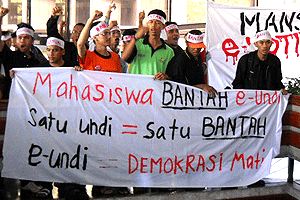 MANS
e-
Mahasiswa BANTAH e-undi
Satu undi = satu BANTAH
e-undi = DEMOKRASI Mati